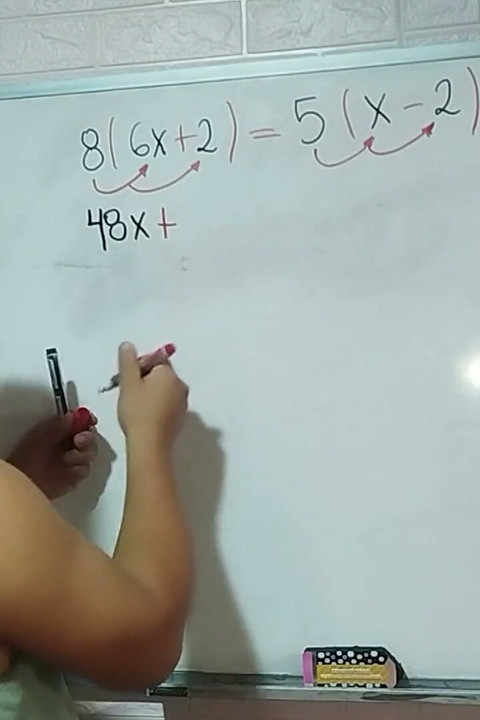 8(6x+2) = 5(x-2)
48x+